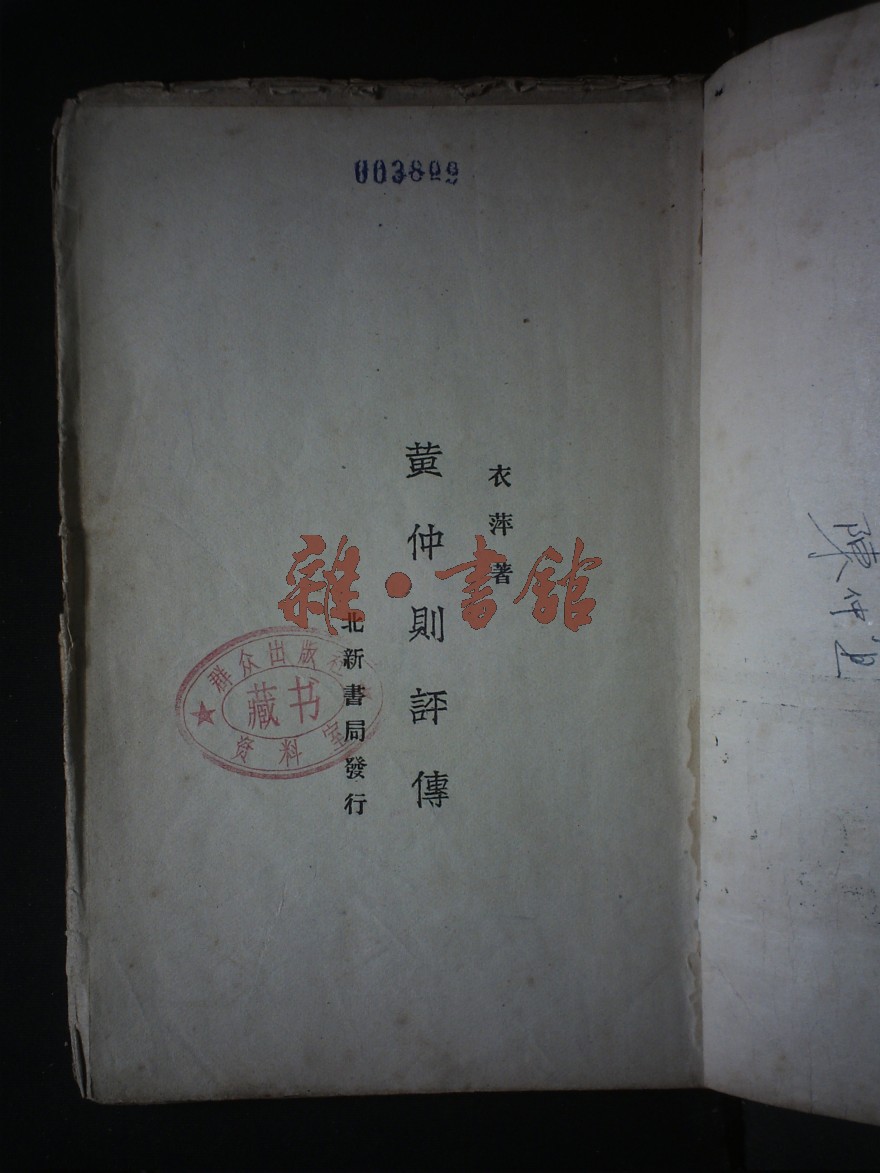 003899
衣萍著
黄仲則評傳
北新書局發行
雜·書館
群众出版社
藏书
资料室
陳仲